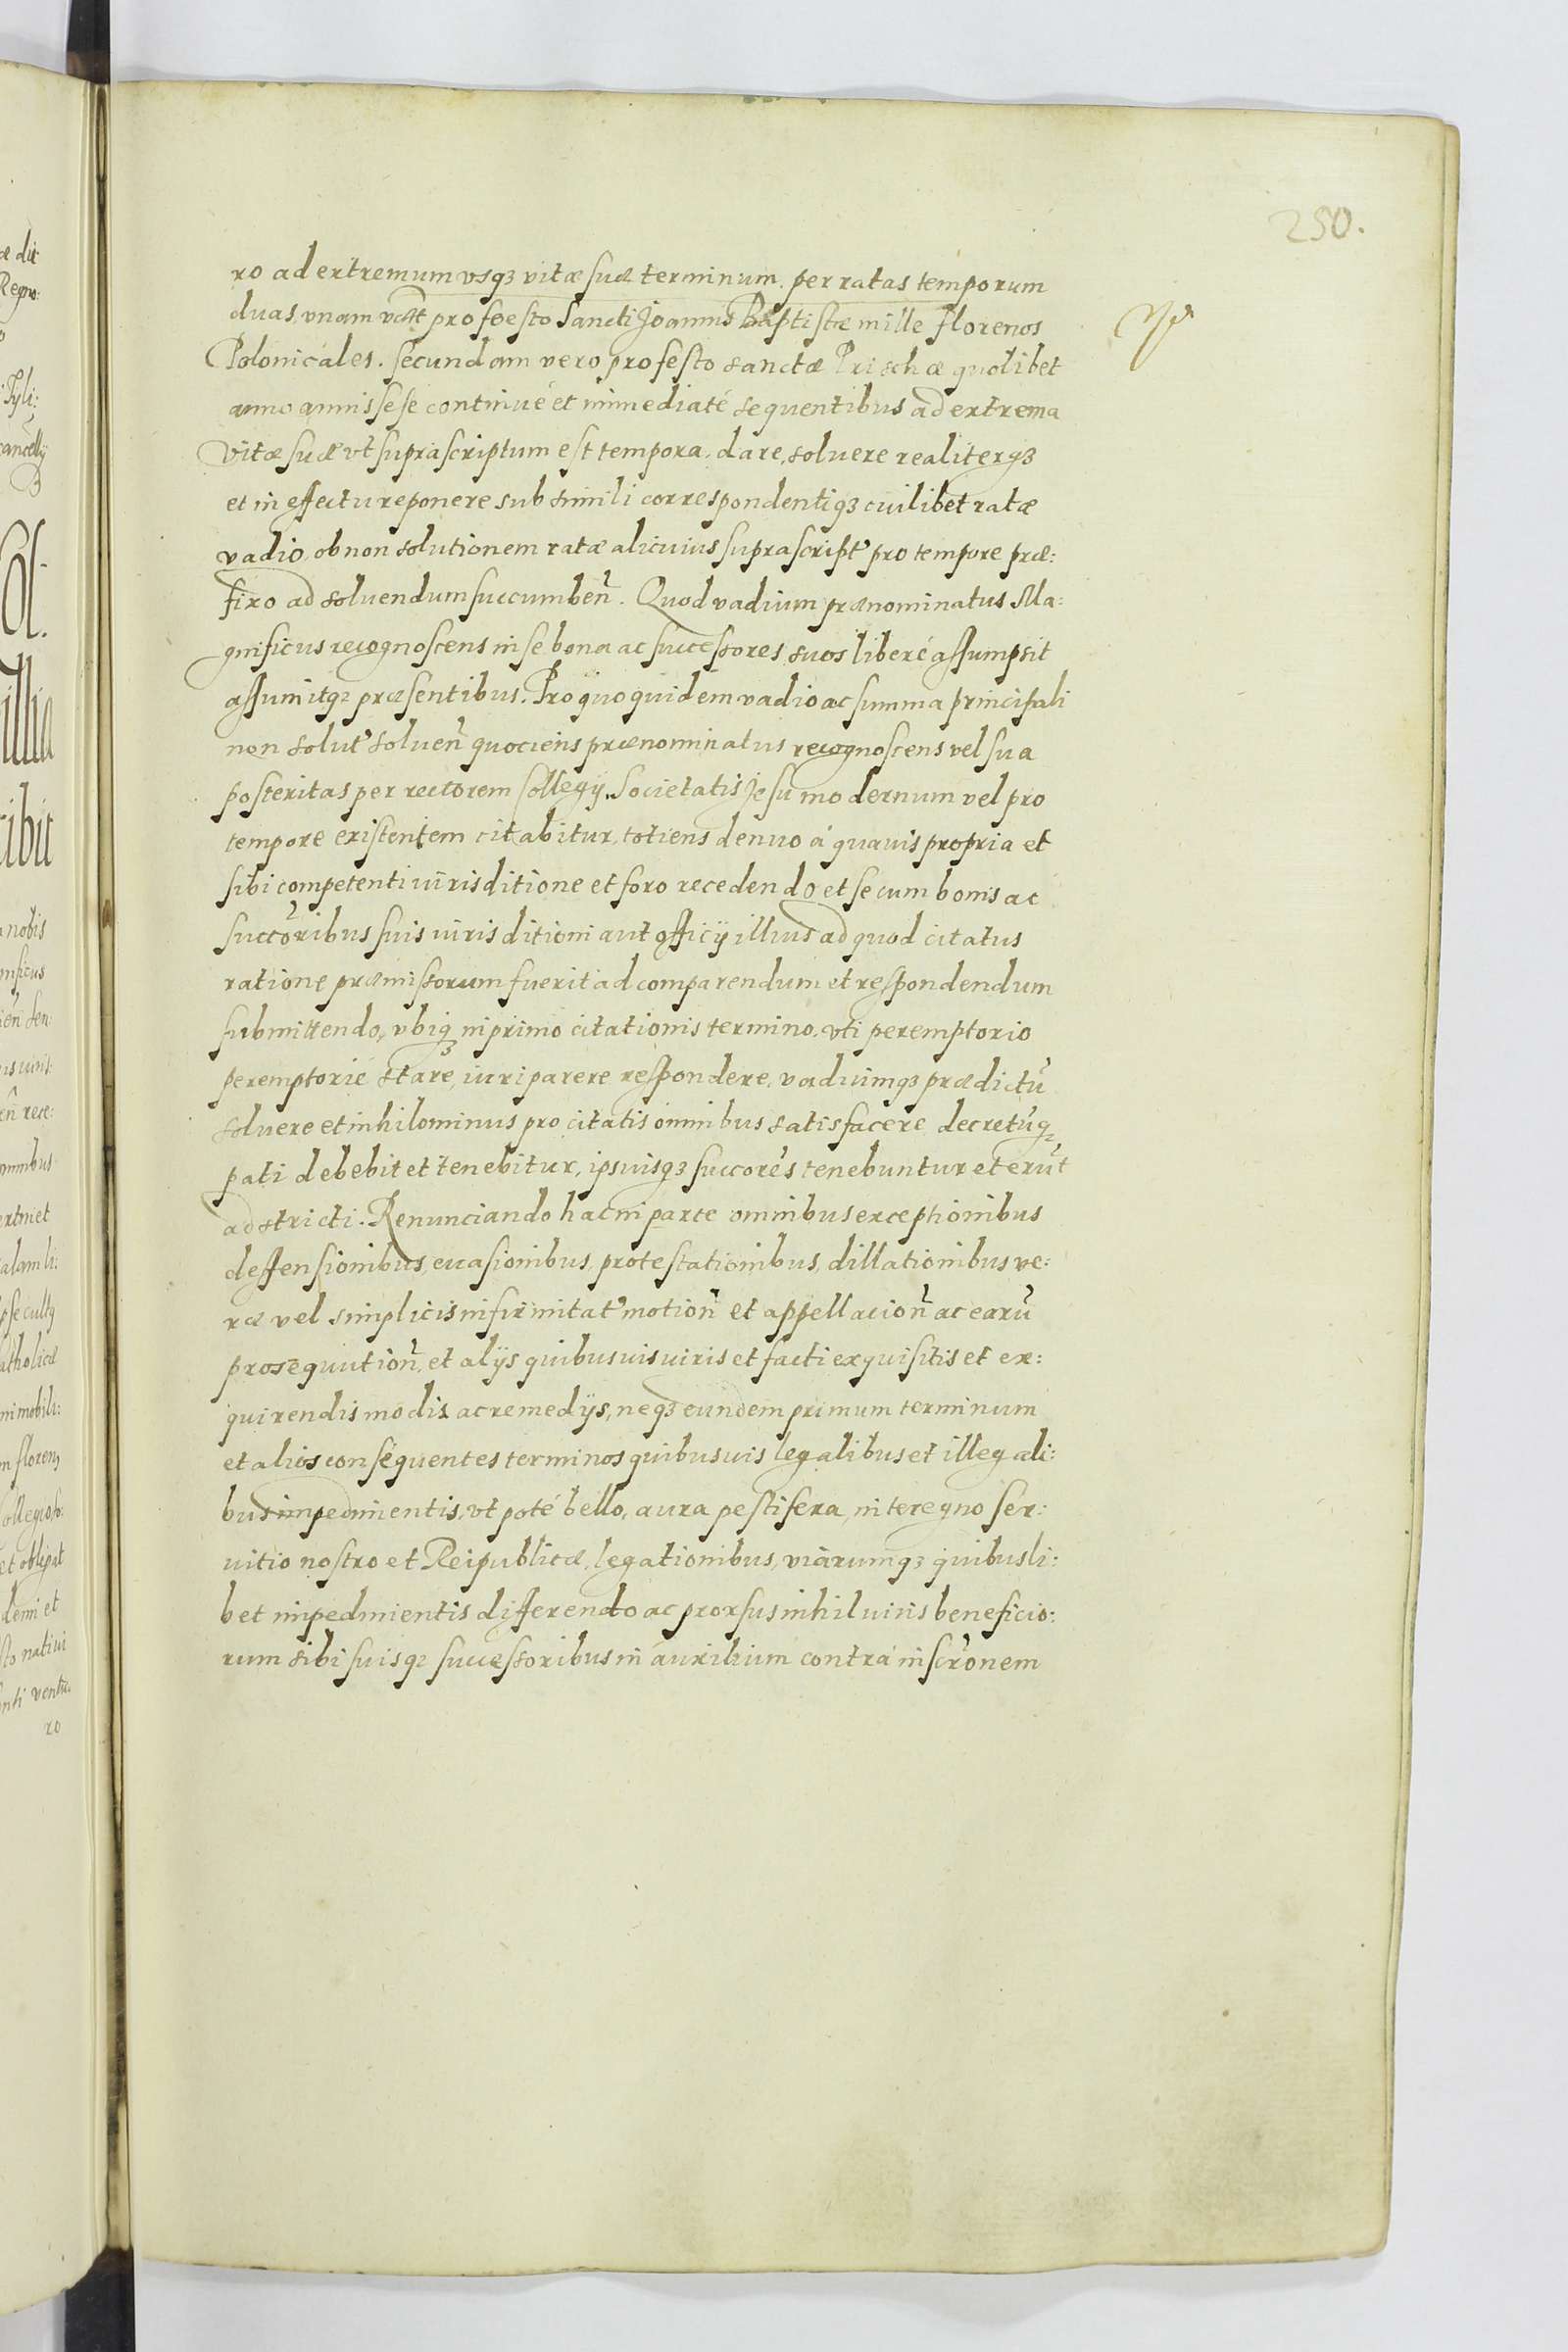 250.
ro ad extremum vsq3 vitæ suæ terminum. per ratas temporum
duas, vnam pro foesto Sancti Joannis Baptistæ mille florenos
Polonicales. secundam vero pro festo sanctæ Prischæ quolibet
anno annis sese continué et immediaté sequentibus ad extrema
vitæ suæ vt suprascriptum est tempora. dare, soluere realiterq3
et in effectu reponere sub simili correspondentiq3 cuilibet ratæ
vadio ob non solutionem ratæ alicuius suprascript' pro tempore præ:
fixo ad soluendum succumbeñ. Quod vadium prænominatus Ma:
gnificus recognoscens in se bona ac successores suos liberé assumpsit
assumitq3 præsentibus. Pro quo quidem vadio ac summa principali
non solut' solueñ quociens prænominatus recognoscens vel sua
posteritas per rectorem Collegÿ Societatis Jesu modernum vel pro
tempore existentem citabitur, totiens denuo á quauis propria et
sibi competenti iurisditione et foro recedendo et se cum bonis ac
succoribus suis iurisditioni aut officÿ illius ad quod citatus
ratione præmissorum fuerit ad comparendum et respondendum
submittendo, vbiq3 in primo citationis termino. vti peremptorio
peremptorié stare, iuri parere respondere, vadiumq3 prædictũ
soluere et inhilominus pro citatis omnibus satisfacere decretũq3
pati debebit et tenebitur, ipsuisq3 succores tenebuntur et erũt
adstricti. Renunciando hac in parte omnibus exceptionibus
deffensionibus, euasionibus, protestationibus, dillationibus ve:
ræ vel simplicis infirmitat' motioñ et appellacioñ ac earũ
prosequutioñ, et alÿs quibusuis iuris et facti exquisitis et ex:
quirendis modis ac remedÿs, neq3 eundem primum terminum
et alios consequentes terminos quibusuis legalibus et illegali:
bus impedimentis, vt poté bello, aura pestifera, interegno ser:
uitio nostro et Reipublicæ, legationibus, viarumq3 quibusli:
bet impedimentis differendo ac prorsus inhil iuris beneficio:
rum sibi suisq3 successoribus in auxilium contra inscronem